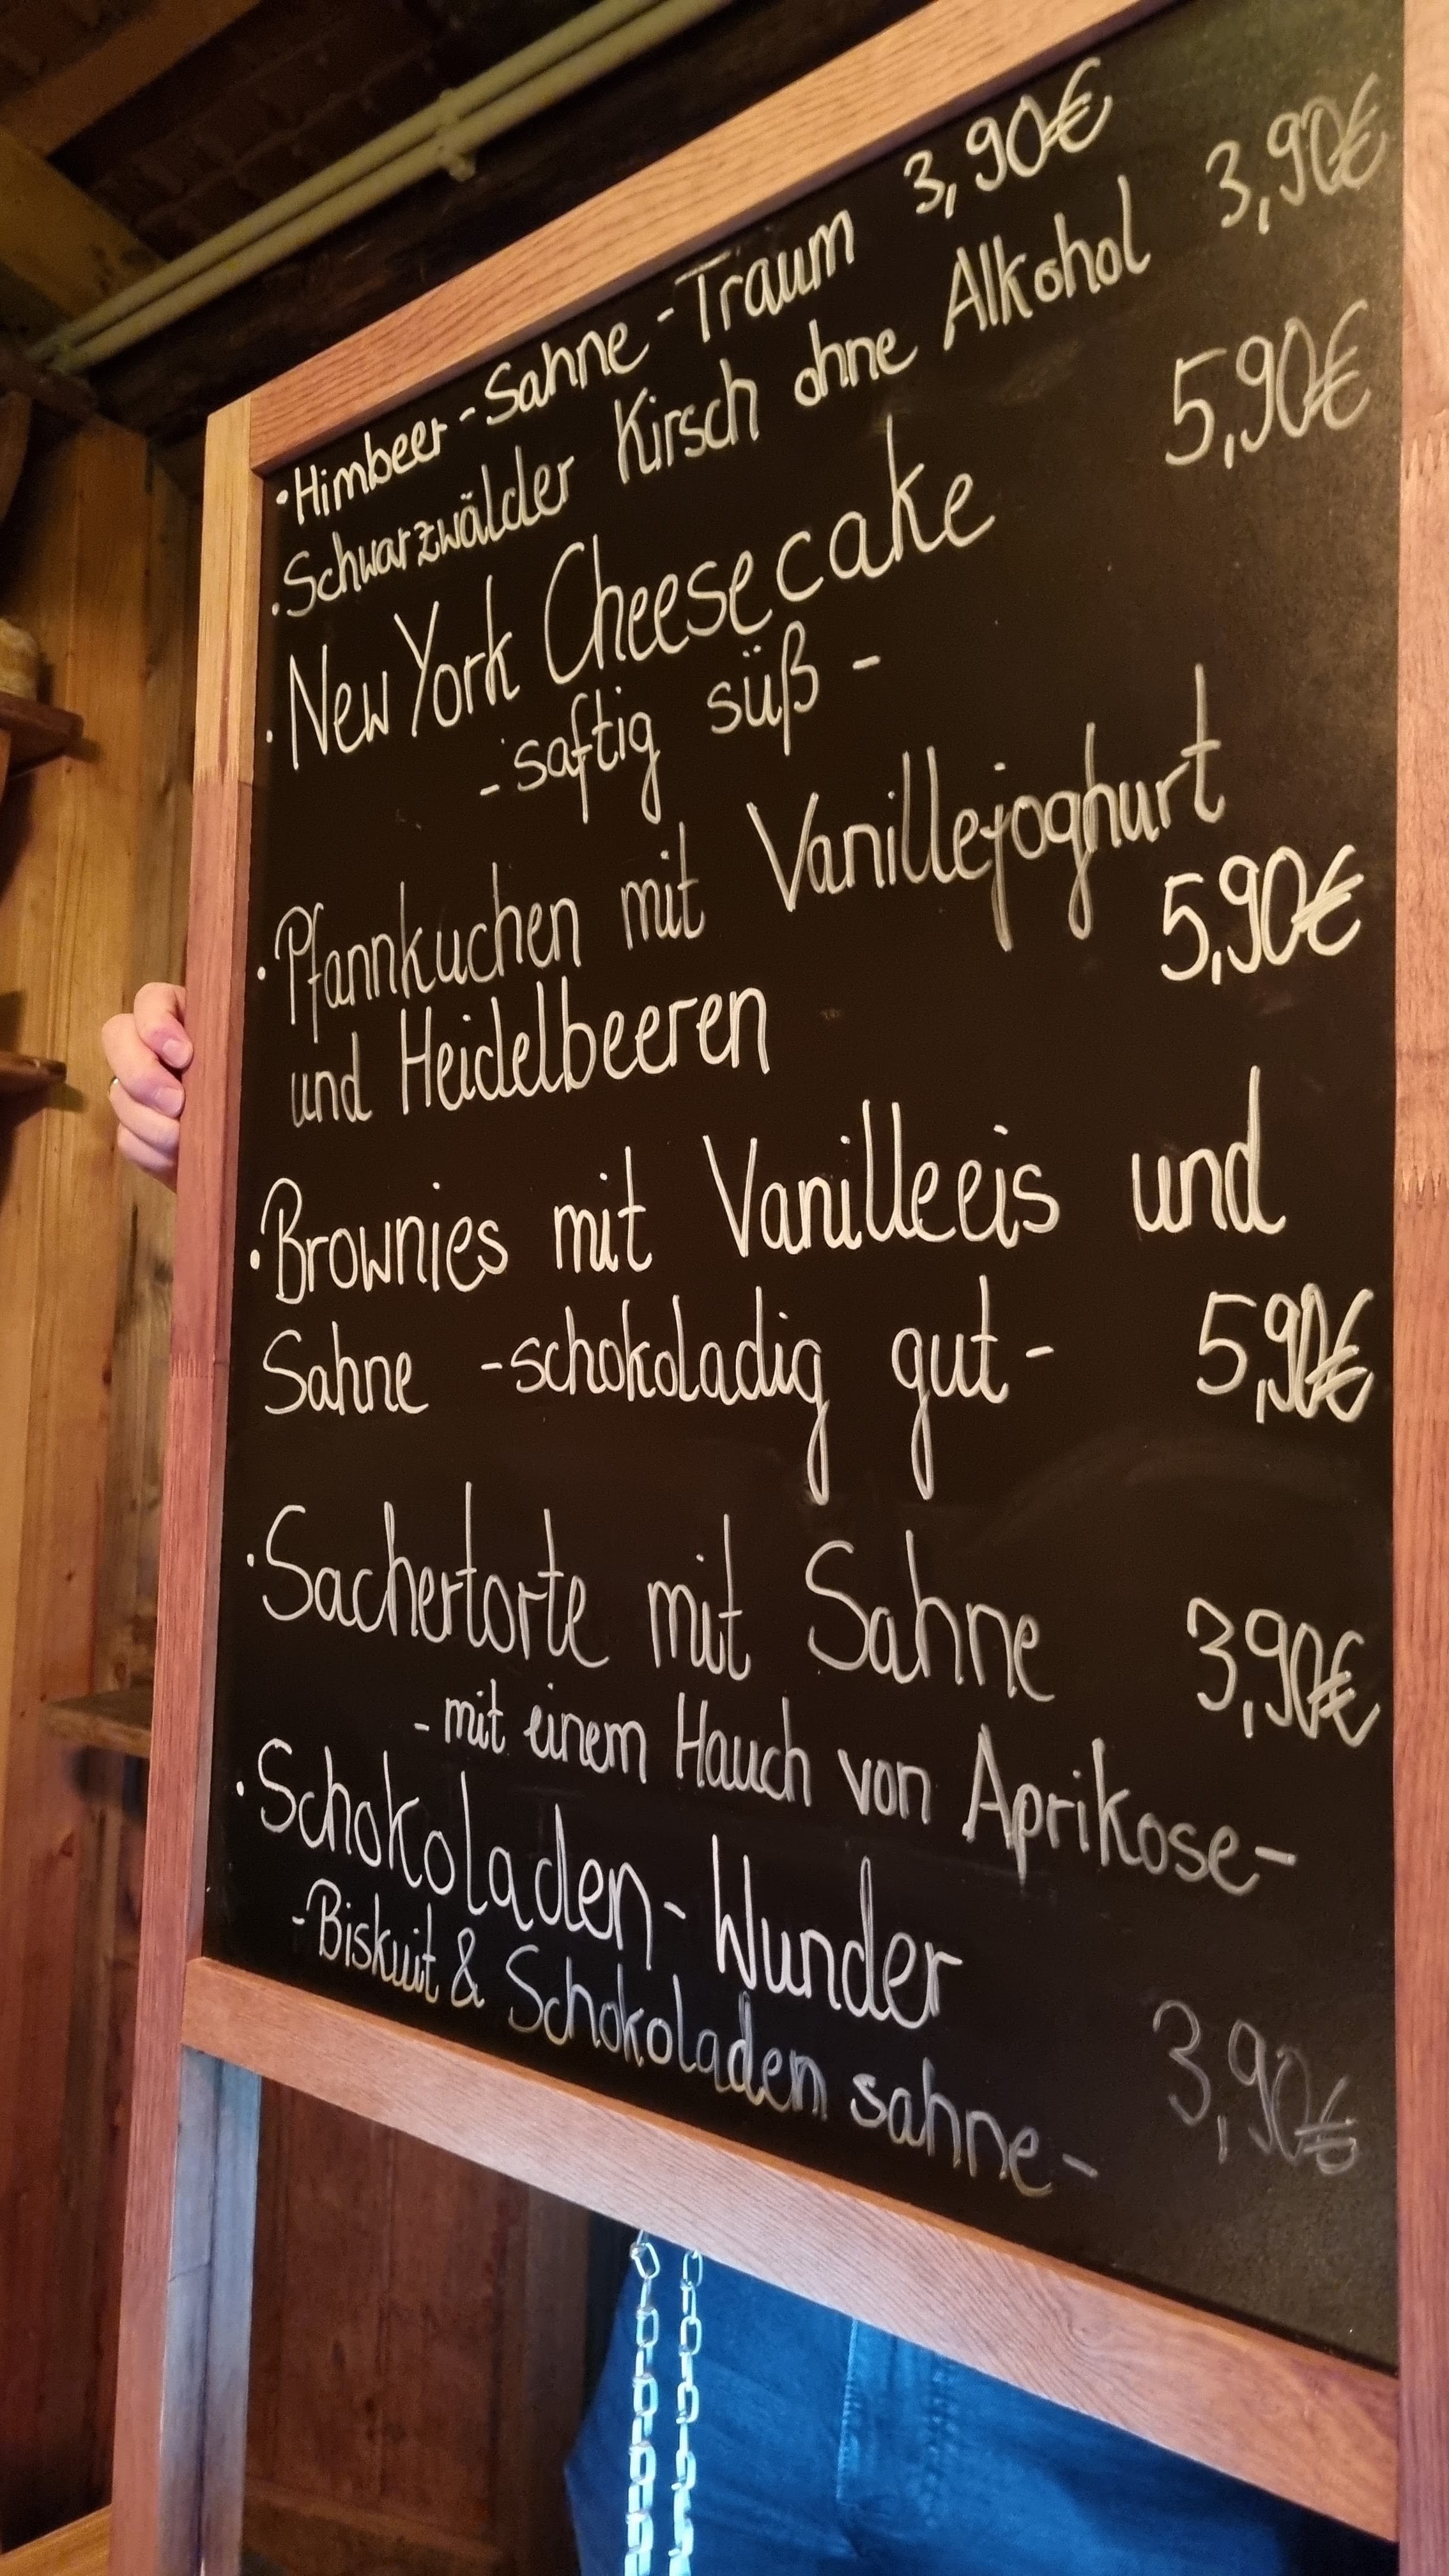 · Himbeer-Sahne-Traum 3,90€
· Schwarzwälder Kirsch ohne Alkohol 3,90€
· New York Cheesecake 5,90€
- saftig süß -
· Pfannkuchen mit Vanillejoghurt
und Heidelbeeren 5,90€
· Brownies mit Vanilleeis und
Sahne - schokoladig gut - 5,90€
· Sachertorte mit Sahne 3,90€
- mit einem Hauch von Aprikose -
· Schokoladen-Wunder
- Biskuit & Schokoladen sahne - 3,90€